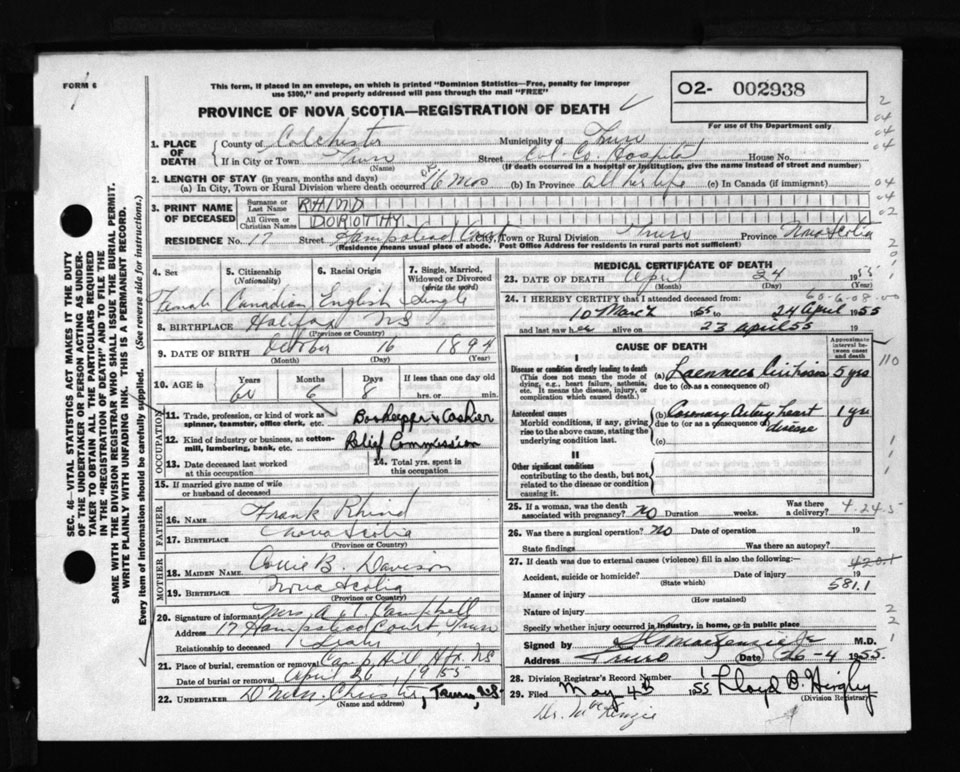 FORM 6
This form, if placed in an envelope, on which is printed "Dominion Statistics—Free, penalty for improper
use $300," and properly addressed will pass through the mail "FREE"
PROVINCE OF NOVA SCOTIA—REGISTRATION OF DEATH
O2- 002938
For use of the Department only
1. PLACE OF DEATH
County of Colchester Municipality of Truro
If in City or Town Truro Street Col. Co. Hospital House No.
(Name) (If death occurred in a hospital or institution, give the name instead of street and number)
2. LENGTH OF STAY (in years, months and days)
(a) In City, Town or Rural Division where death occurred 16 mos (b) In Province all her life (c) In Canada (if immigrant)
3. PRINT NAME OF DECEASED
Surname or Last Name RHIND
All Given or Christian Names DOROTHY
RESIDENCE No. 17 Street Hampstead Court City, Town or Rural Division Truro Province Nova Scotia
(Residence means usual place of abode. Post Office Address for residents in rural parts not sufficient)
4. Sex Female
5. Citizenship (Nationality) Canadian
6. Racial Origin English
7. Single, Married, Widowed or Divorced (write the word) Single
8. BIRTHPLACE Halifax NS
(Province or Country)
9. DATE OF BIRTH October 16 1894
(Month) (Day) (Year)
10. AGE in Years 60 Months 6 Days 8 If less than one day old hrs. or min.
OCCUPATION
11. Trade, profession, or kind of work as spinner, teamster, office clerk, etc. Bookkeeper & Cashier
12. Kind of industry or business, as cotton-mill, lumbering, bank, etc. Relief Commission
13. Date deceased last worked at this occupation
14. Total yrs. spent in this occupation
15. If married give name of wife or husband of deceased
FATHER
16. NAME Frank Rhind
17. BIRTHPLACE Nova Scotia
(Province or Country)
MOTHER
18. MAIDEN NAME B. Davison
19. BIRTHPLACE Nova Scotia
(Province or Country)
20. Signature of informant Mrs. A. Campbell
Address 17 Hampstead Court, Truro
Relationship to deceased
21. Place of burial, cremation or removal Camp Hill Hfx. NS
Date of burial or removal April 26 1955
22. UNDERTAKER Truro, N.S.
(Name and address)
MEDICAL CERTIFICATE OF DEATH
23. DATE OF DEATH Apr 24 1955
(Month) (Day)
60-6-08-00
24. I HEREBY CERTIFY that I attended deceased from:
10 March 1955 to 24 April 1955
and last saw her alive on 23 april 55 19
CAUSE OF DEATH
Approximate interval between onset and death
I
Disease or condition directly leading to death
(This does not mean the mode of dying, e.g., heart failure, asthenia, etc. It means the disease, injury, or complication which caused death.)
(a) Laennecs Cirrhosis 5 yrs
due to (or as a consequence of)
Antecedent causes
Morbid conditions, if any, giving rise to the above cause, stating the underlying condition last.
(b) Coronary Artery heart disease 1 yr
due to (or as a consequence of)
(c)
II
Other significant conditions contributing to the death, but not related to the disease or condition causing it.
25. If a woman, was the death associated with pregnancy? NO Duration weeks. Was there a delivery?
4-24-5
26. Was there a surgical operation? NO Date of operation 19
State findings Was there an autopsy?
27. If death was due to external causes (violence) fill in also the following:
420.1
Accident, suicide or homicide? Date of injury 19
(State which)
581.1
Manner of injury
(How sustained)
Nature of injury
Specify whether injury occurred in industry, in home, or in public place
Signed by MacKenzie Jr M.D.
Address Truro Date 26-4 1955
28. Division Registrar's Record Number
29. Filed May 4th 1955 Lloyd B.
(Division Registrar)
Dr. McKenzie
SEC. 46—VITAL STATISTICS ACT MAKES IT THE DUTY
OF THE UNDERTAKER OR PERSON ACTING AS UNDER-
TAKER TO OBTAIN ALL THE PARTICULARS REQUIRED
IN THE "REGISTRATION OF DEATH" AND TO FILE THE
SAME WITH THE DIVISION REGISTRAR WHO SHALL ISSUE THE BURIAL PERMIT.
WRITE PLAINLY WITH UNFADING INK. THIS IS A PERMANENT RECORD.
Every item of information should be carefully supplied. (See reverse side for instructions.)
2
04
04
04
04
04
02
2
01
110
1
1
1
2
2
1